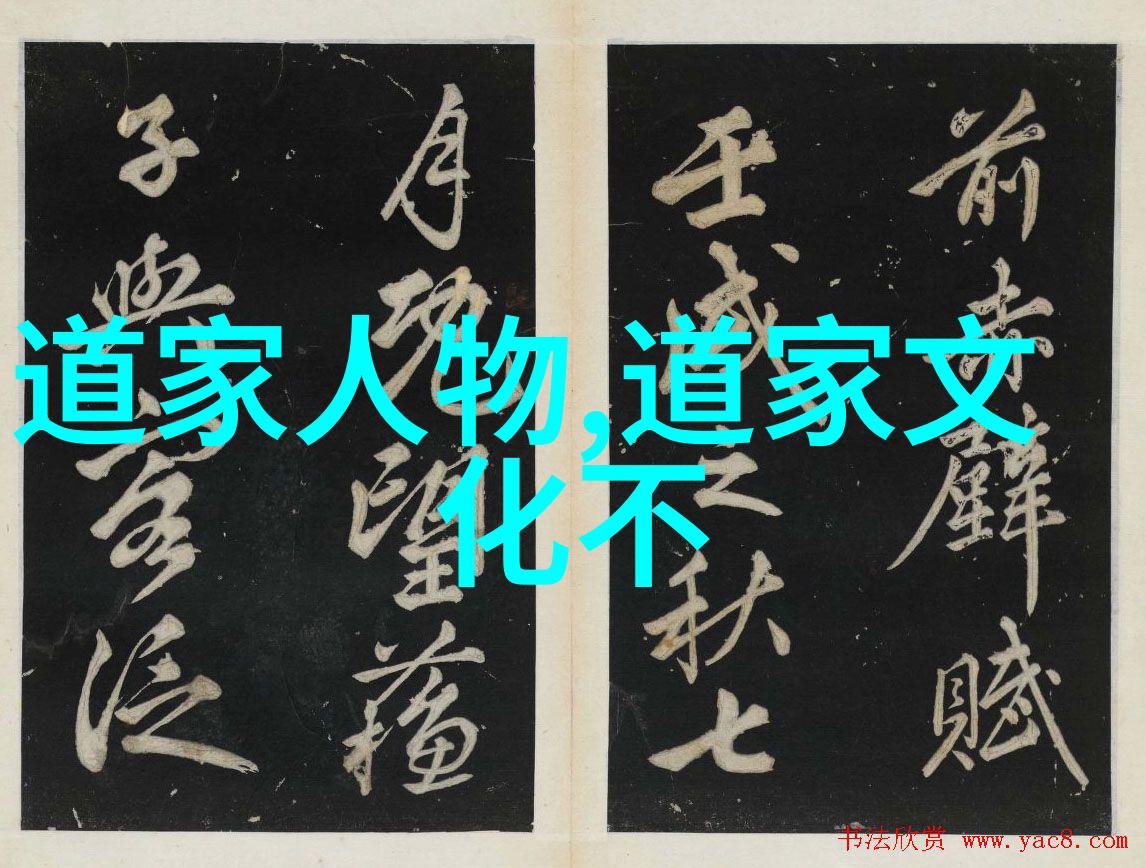 道家人物,道家文
化不
前赤壁賦
壬戌之秋七
月既望蘓
子與客泛
书法欣赏 www.yac8.com